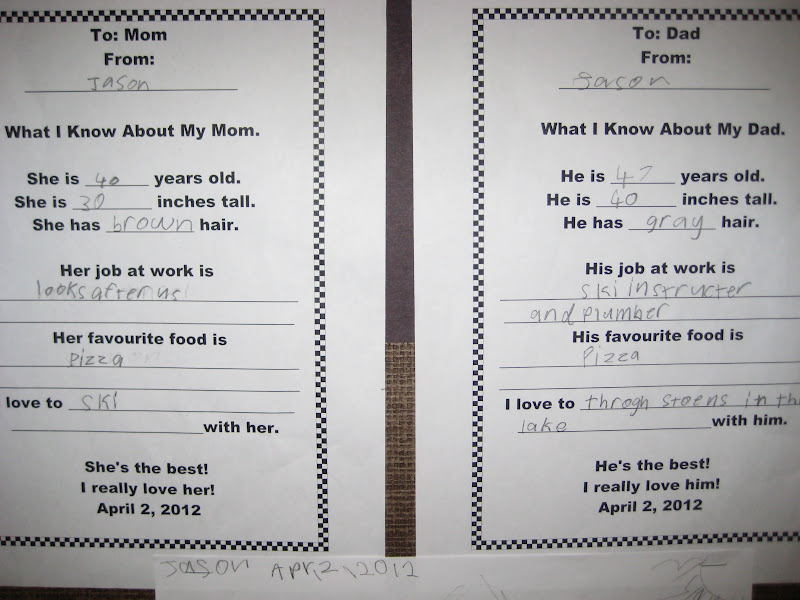 To: Mom
From:
Jason
What I Know About My Mom.
She is 40 years old.
She is 30 inches tall.
She has brown hair.
Her job at work is
looks after us
Her favourite food is
Pizza
love to Ski
with her.
She's the best!
I really love her!
April 2, 2012
To: Dad
From:
Jason
What I Know About My Dad.
He is 47 years old.
He is 40 inches tall.
He has gray hair.
His job at work is
Ski instructer
and Plumber
His favourite food is
Pizza
I love to throgh stoens in th
lake with him.
He's the best!
I really love him!
April 2, 2012
JASON APR,2,2012